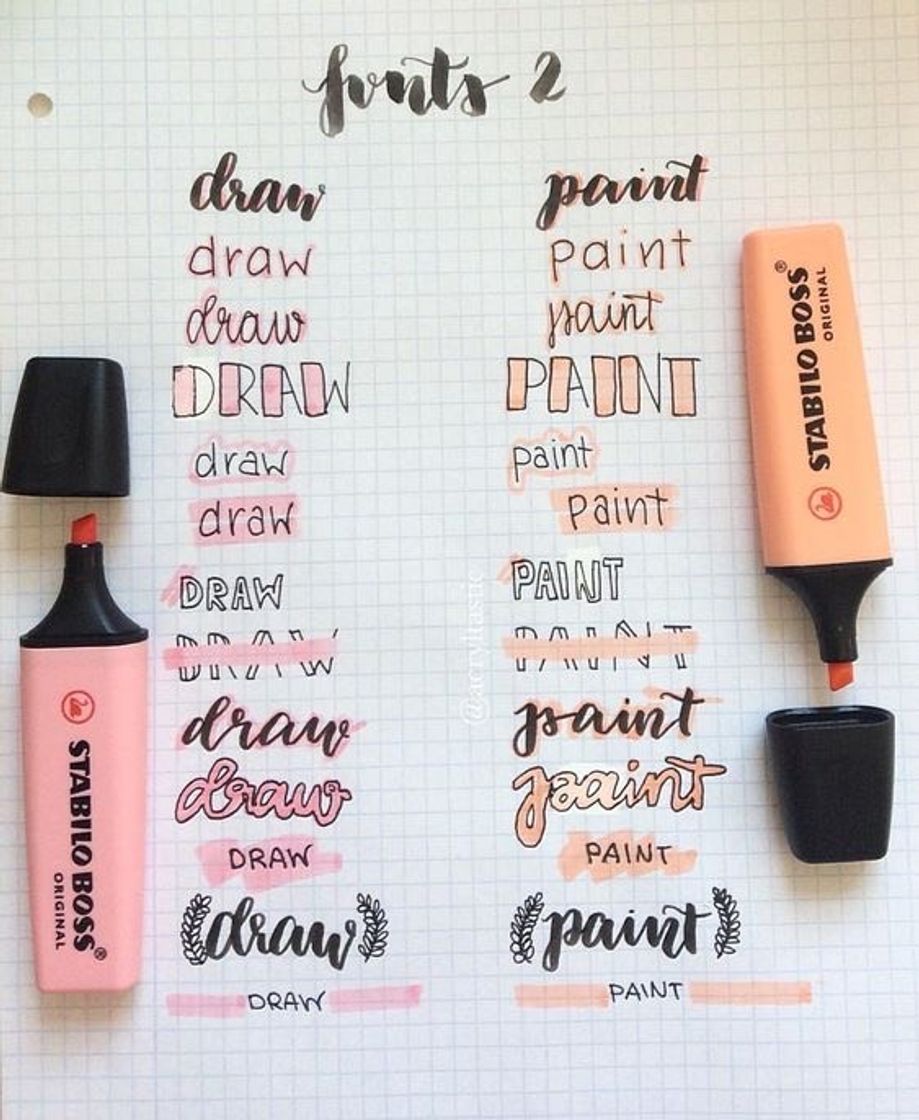 fonts 2
draw paint
draw paint
draw paint
DRAW PAINT
draw paint
draw paint
DRAW PAINT
DRAW PAINT
draw paint
draw paint
DRAW PAINT
draw paint
DRAW PAINT
STABILO BOSS
ORIGINAL
STABILO BOSS
ORIGINAL
@acryltastic